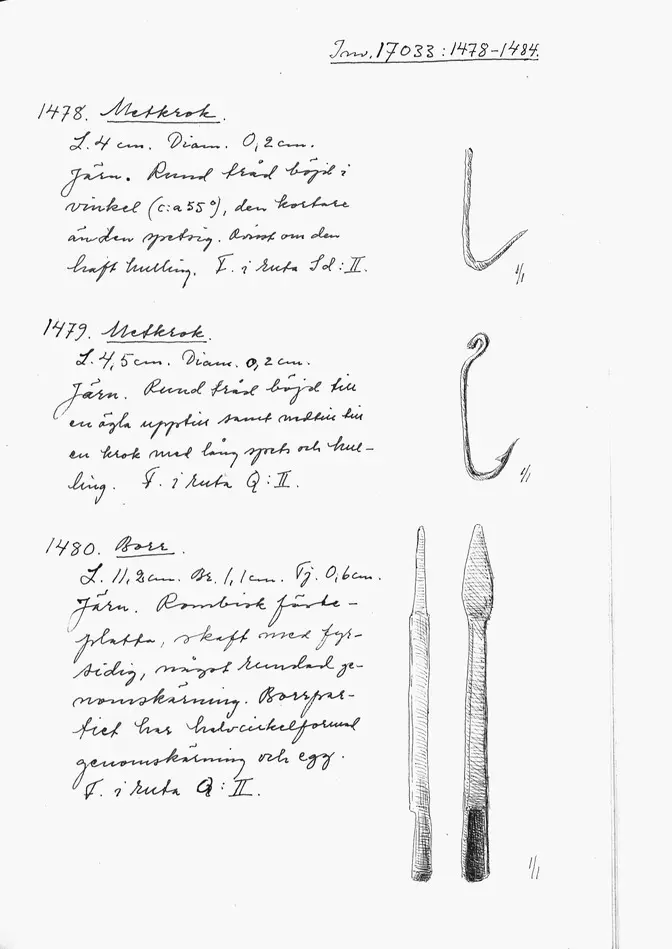 Inv. 17033:1478-1484.
1478. Metkrok.
L. 4 cm. Diam. 0,2 cm.
Järn. Rund tråd böjd i
vinkel (c:a 55°), den kortare
änden spetsig. Ovisst om den
haft hulling. F. i ruta Sd:II.
1/1
1479. Metkrok.
L. 4,5 cm. Diam. 0,2 cm.
Järn. Rund tråd böjd till
en ögla upptill samt nedtill till
en krok med lång spets och hul-
ling. F. i ruta Q:II.
1/1
1480. Borr.
L. 11,2 cm. Br. 1,1 cm. Tj. 0,6 cm.
Järn. Rombisk fäste-
platta, skaft med fyr-
sidig, något rundad ge-
nomskärning. Borrpar-
tiet har halvcirkelformad
genomskärning och egg.
F. i ruta Q:II.
1/1